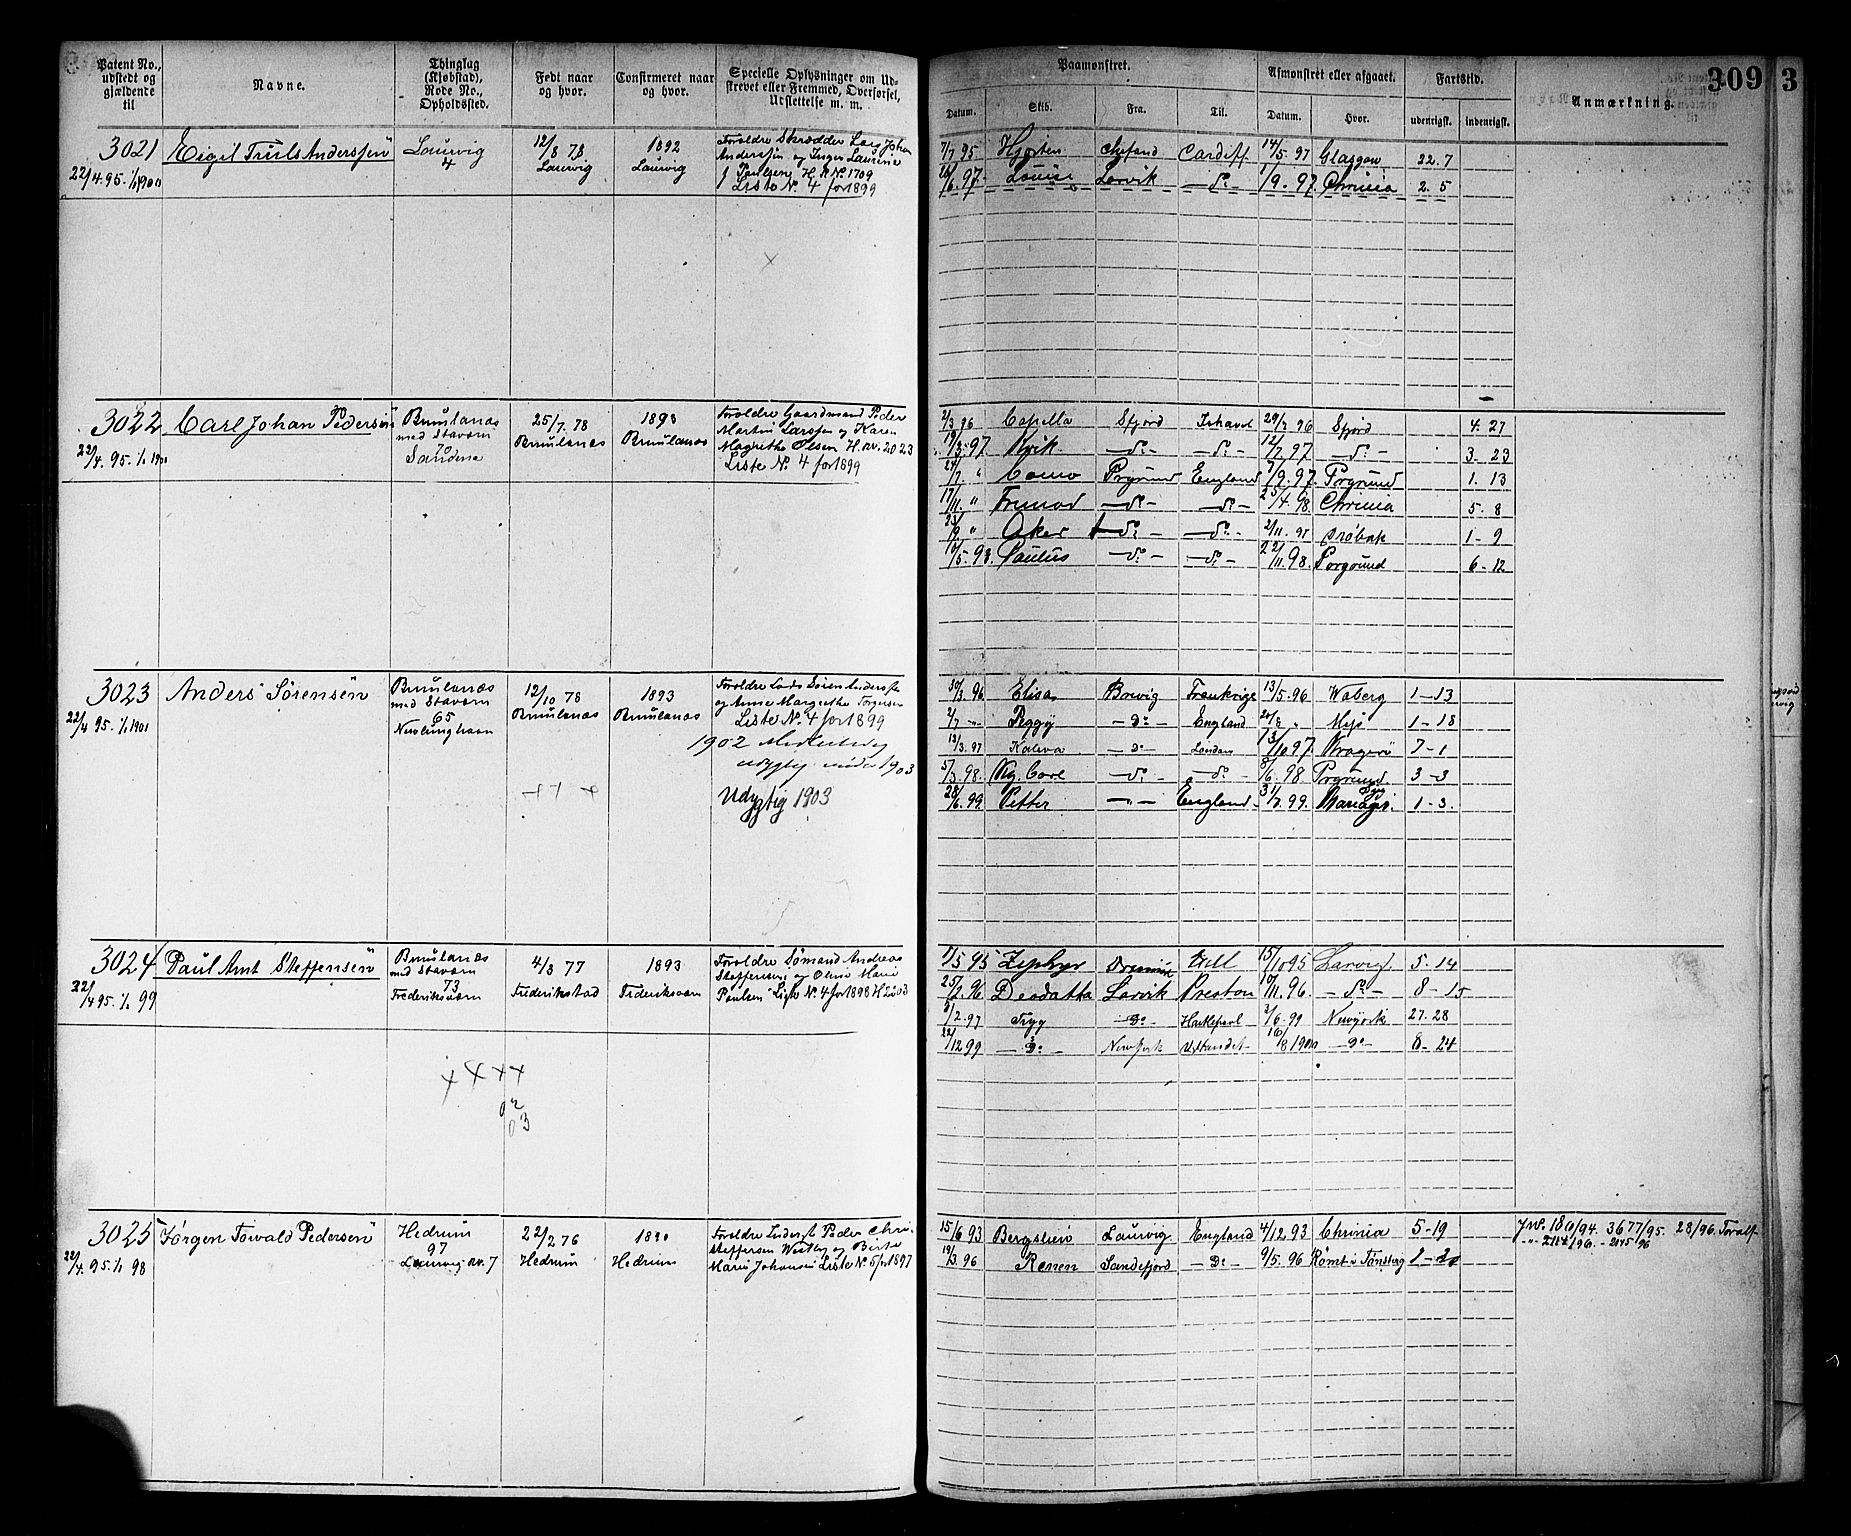 Patent No., udstedt og gjældende til
Navne.
Thinglag (Kjøbstad), Rode No., Opholdssted.
Født naar og hvor.
Confirmeret naar og hvor.
Specielle Oplysninger om Udstrevet eller Fremmed, Overførsel, Udslettelse m. m.
Paamønstret.
Afmønstret eller afgaaet.
Fartstid.
Anmærkning.
309
3
Datum. Skib. Fra. Til. Datum. Hvor. udenrigst. indenrigst.
3021 Eigil Truls Anderssen Laurvig 12/8 78 1892 Forældre Skrædder Lars Johan
22/4.95.1/1 1900 4 Laurvig Laurvig Anderssen og Inger Laurine
Paulsen H. R No 1709
Liste No 4 for 1899
7/7 95 Hjorten Cardiff 14/5.97 Glasgow 22.7
/6.97. Louise Larvik - Do - 1/9.97 Chrinia 2.5
3022 Carl Johan Pedersen Brunlanæs 25/7.78 1893 Forældre Gaardmand Peder
22/4.95.1/1 1901 med Stavern Brunlanæs Brunlanæs Martin Larssen og Karen
Magrethe Olsen H. nr. 2023
Liste No 4 for 1899
2/3 96 Capella Sfjord Ishavet 29/7 96 Sfjord 4.27
19/3.97 Kvik - Do - - Do - 12/7 97 - Do - 3. 23
24/7 " Como Prgrund England 7/9.97. Prgrund 1.13
17/11. " Fremad - Do - - Do - 23/4.98. Chrinia 5.8
" Aker - Do - - Do - 2/11.97 Drøbak 1-9
10/5.98. Paulus - Do - - Do - 22/11.98. Porgrund 6-12
3023 Anders Sørensen Brunlanæs 12/10 78 1893 Forældre Lods Søren Anders
22/4 95.1/1 1901 med Stavern Brunlanæs Brunlanæs og Anne Margrethe Torgersen
65 Liste No 4 for 1899
Nevlunghavn 1902
1903
Udygtig 1903
30/3.96. Elisa Brevig Frankrige 13/5.96 Waberg 1-13
2/7 -"- Peggy - Do - England 20/8 " 1-18
13/3.97 Kaleva - Do - London 13/10 97. Kragerø 7-1
5/3.98. Kg. Carl - Do - - Do - 8/6.98. Prgrund. 3-3
28/6.99. Petter - " - England. 31/7.99. 1-3.
3024 Paul Amt Steffensen Brunlanæs 4/3 77 1893 Forældre Sømand Andreas
22/4 95.1/1 99 med Stavern Frederikstad Frederiksværn Steffensen og Oline Marie
73 Paulsen Liste No. 4 for 1898 H 2003
Frederiksværn
1/5 95 Zephyr Hull 15/10 95 Larvig 5-14
25/2.96 Deodatta Larvik Preston 10/11.96. - Do - 8-15
/2.97 Tryg - Do - Hartlepool 2/6.99 Newyork 27.28
22/12 99 - Do - Newyork Udlandet 16/8 1900 - Do - 8-24
02
03
3025 Jørgen Torvald Pedersen Hedrum 22/2 76 1890 Forældre Inderst Peder Chri-
22/4.95.1/1 98 97 Hedrum Hedrum Steffersen Westby og Birte
Laurvig nr. 7 Marie Johansen Liste No 5 for 1897
15/6 93 Bergslien Laurvig England 4/12.93 Chrinia 5-19
19/3.96 Renen Sandefjord - Do - 9/5.96 Rømt i Tønsberg 1-20
Jno. 180/94. 3677/95. 28/96. Toralf
-"- 2112/96. - 2145 96